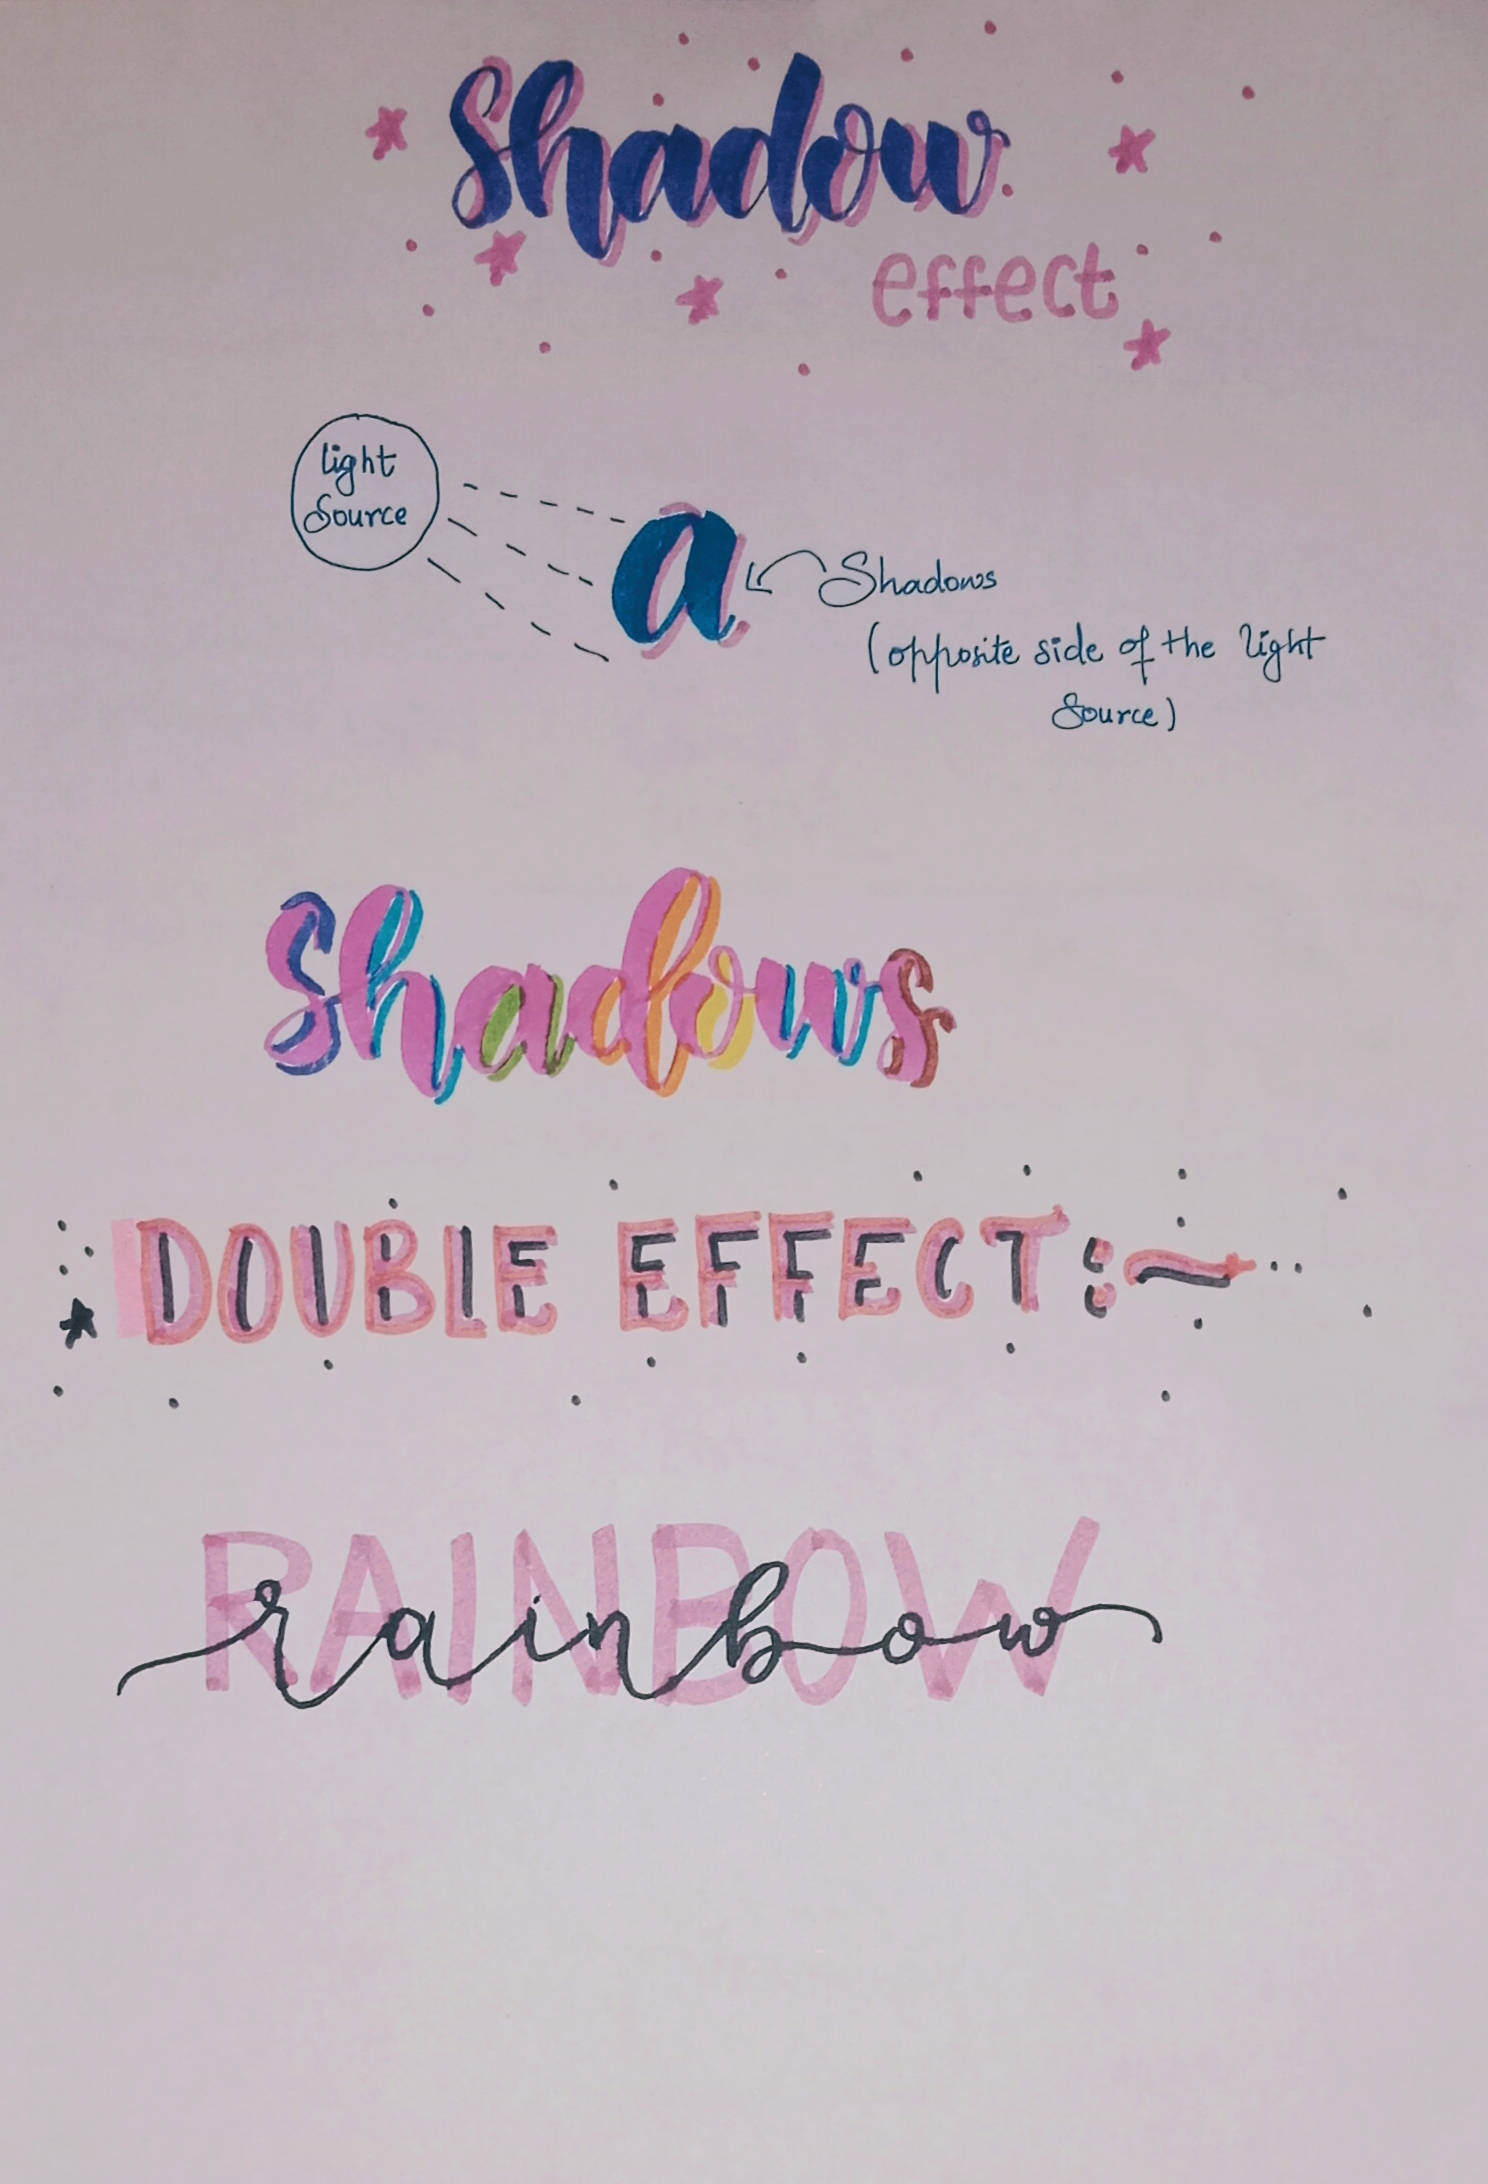 Shadow
effect
light
Source
a
Shadows
(opposite side of the light
Source)
Shadows
DOUBLE EFFECT:~
RAINBOW
rainbow